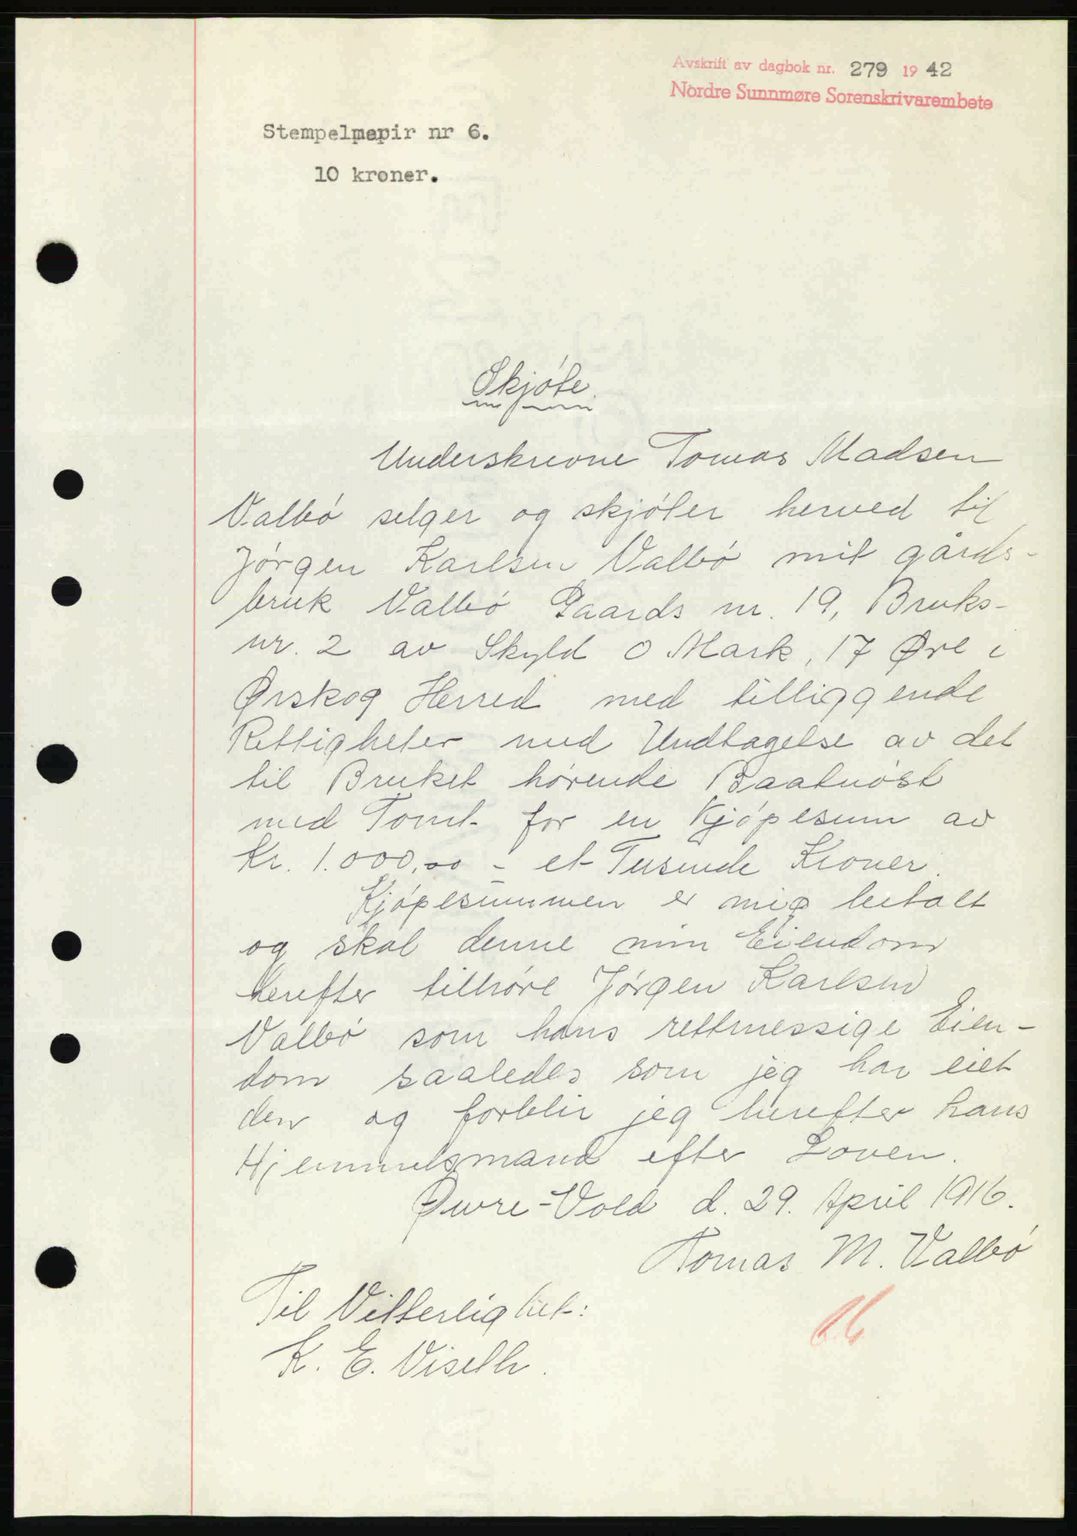 Avskrift av dagbok nr. 279 19 42
Nordre Sunnmøre Sorenskrivarembete
Stempelpapir nr 6.
10 kroner.
Skjøte.
Underskrevne Tomas Madsen
Valbó selger og skjóter herved til
Jórgen Karlsen Valbó mit gårds-
bruk Valbó Gaards nr. 19, Bruks-
nr. 2 av Skyld 0 Mark, 17 Øre i
Ørskog Herred med tilliggende
Rettigheter med Undtagelse av det
til Bruket hórende Baatnóst
med Tomt for en Kjópesum av
Kr. 1.000,00 - et Tusinde Kroner.
Kjópesummen er mig betalt
og skal denne min Eiendom
herefter tilhóre Jórgen Karlsen
Valbó som hans rettmessige Eien-
dom saaledes som jeg har eiet
den og forblir jeg herefter hans
Hjemmelsmand efter Loven.
Øwre-Vold d. 29. April 1916.
Tomas M. Valbó
Til Vitterlighet:
K. E. Viseth.